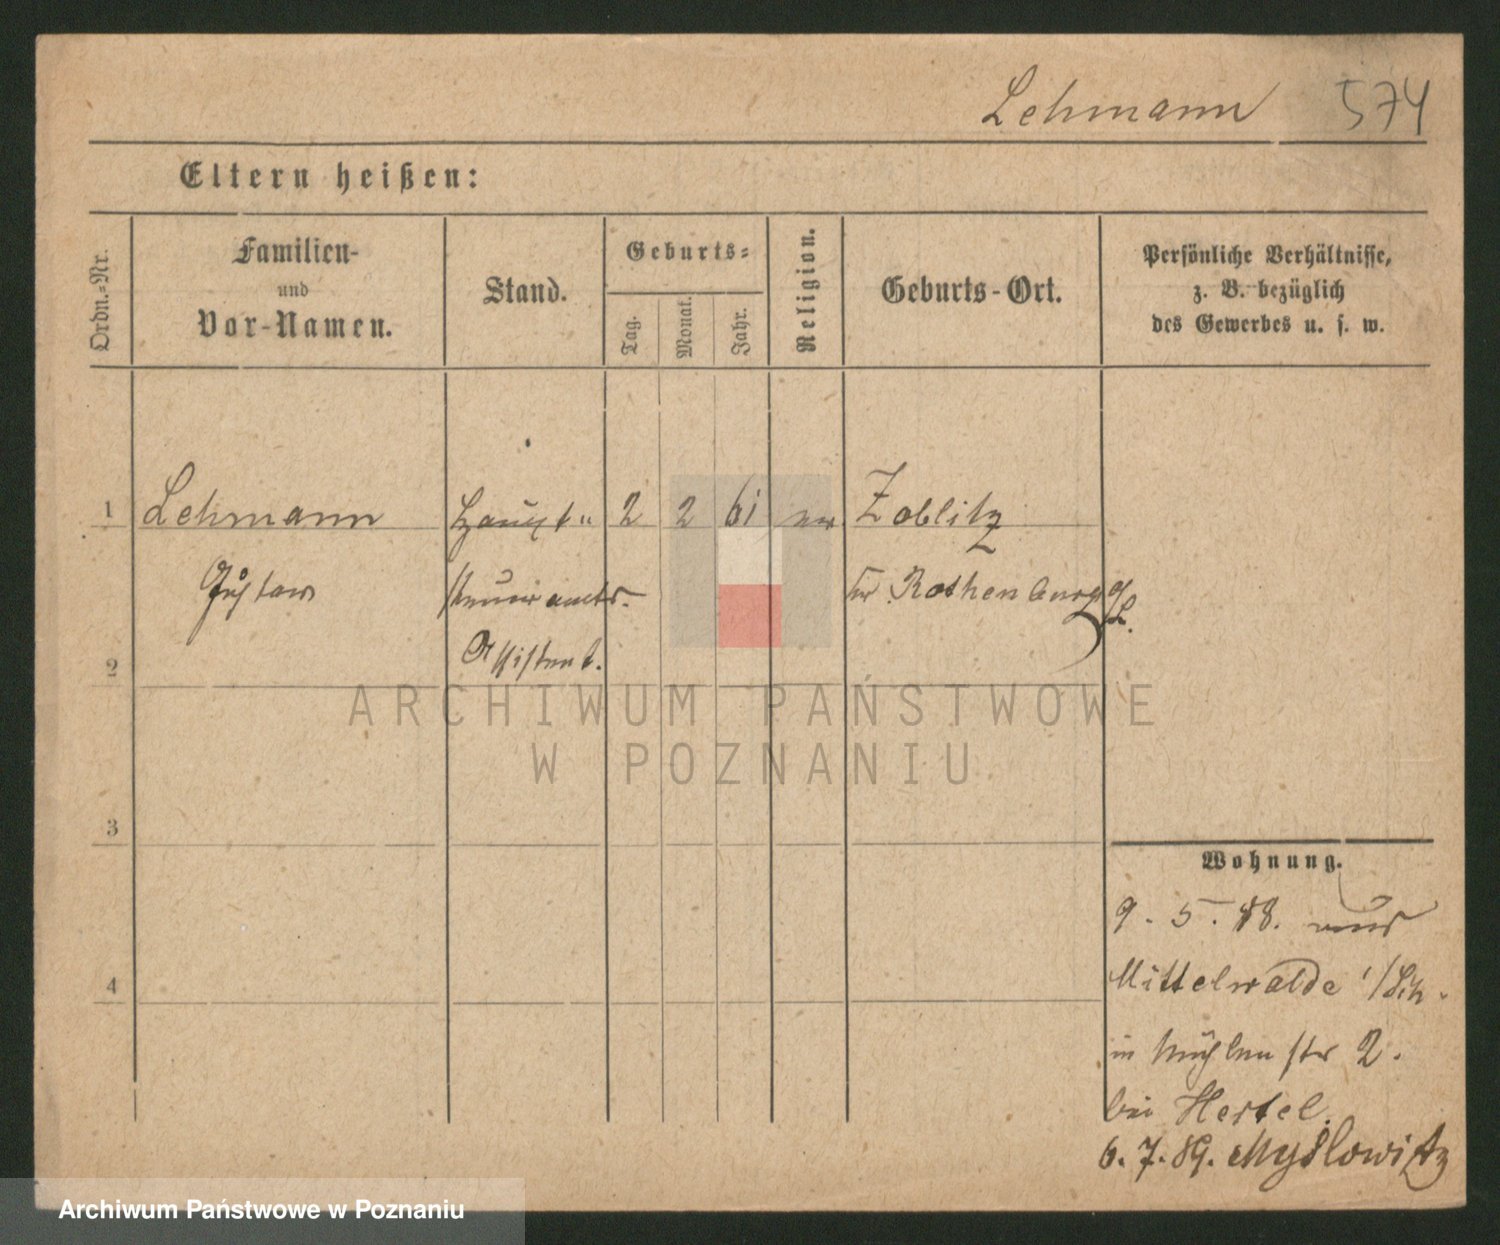 Lehmann 574
Eltern heißen:
Ordn.-Nr.
Familien-
und
Vor-Namen.
Stand.
Geburts-
Tag.
Monat.
Jahr.
Religion.
Geburts-Ort.
Persönliche Verhältnisse,
z. B. bezüglich
des Gewerbes u. s. w.
1 Lehmann Haupt- 2 2 61 ev Zoblitz
Gustav steueramts- Kr Rothenburg O/L.
2 Assistent.
ARCHIWUM PAŃSTWOWE
W POZNANIU
3
4
Wohnung.
9. 5. 88. aus
Mittelwalde i/Sch.
in Mühlenstr 2.
bei Hertel.
6. 7. 89. Myslowitz
Archiwum Państwowe w Poznaniu